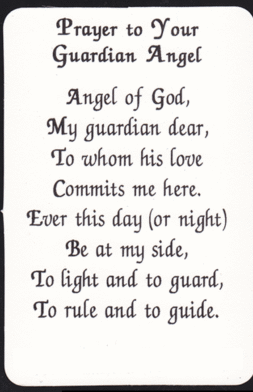 Prayer to Your
Guardian Angel
Angel of God,
My guardian dear,
To whom his love
Commits me here.
Ever this day (or night)
Be at my side,
To light and to guard,
To rule and to guide.